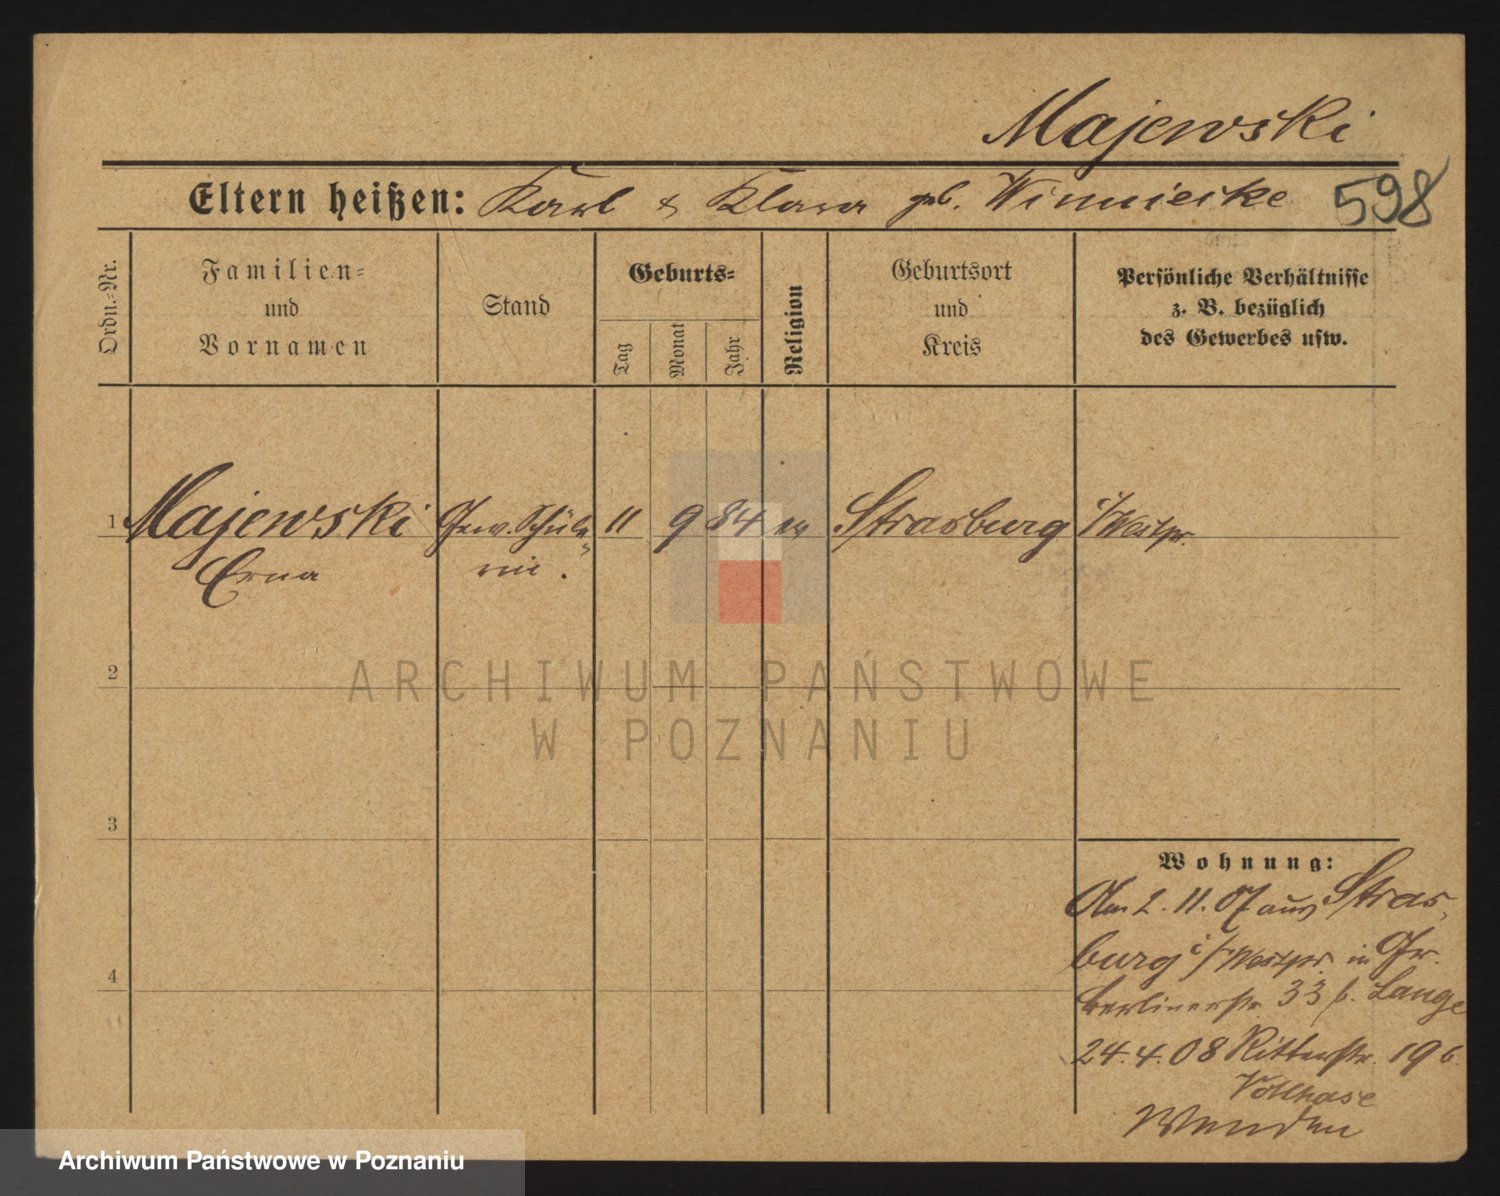 Majewski
Eltern heißen: Karl & Klara geb. Winniecke 598
Ordn.-Nr.
Familien-
und
Vornamen
Stand
Geburts-
Tag
Monat
Jahr
Religion
Geburtsort
und
Kreis
Persönliche Verhältnisse
z. B. bezüglich
des Gewerbes usw.
1 Majewski Gew. Schüle- 11 9 84 ev Strasburg i/Westpr.
Erna rin.
2
3
4
ARCHIWUM PAŃSTWOWE
W POZNANIU
Wohnung:
Am 2.11.07 aus Stras-
burg i/Westpr. in Gr.
Berlinerstr. 33 b. Lange
24.4.08 Ritterstr. 19 b.
Vollhase
Wenden
Archiwum Państwowe w Poznaniu